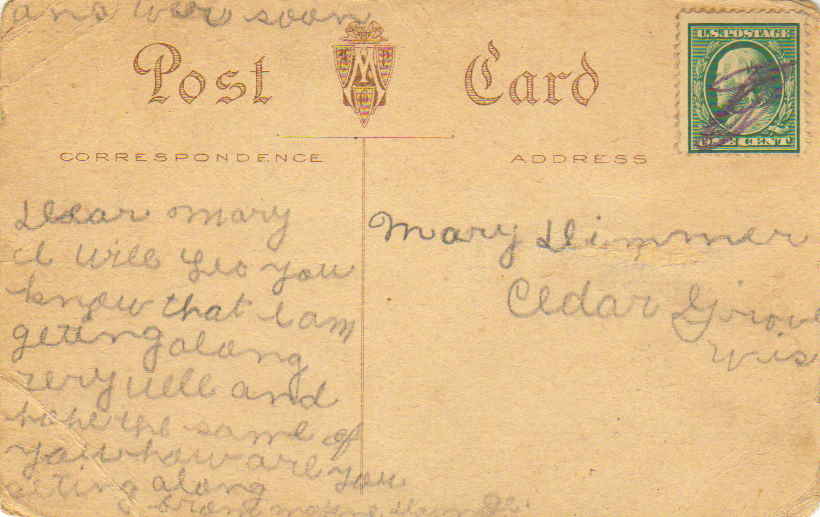 ans wer soon
Post Card
CORRESPONDENCE
ADDRESS
U.S. POSTAGE
ONE CENT
Dear Mary
I will leo you
know that I am
geting along
very well and
hope the same of
you how are you
geting along
from
Mary Dimmer
Cedar Grove
Wis